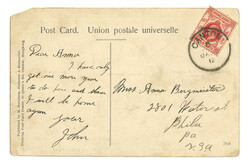 Post Card. Union postale universelle
CANTON
Dear Anna
I have only
got one more year
to do here and then
I will be home
again
Yours
John
Miss Anna Burgmeister
2801 Water st
Phila
Pa